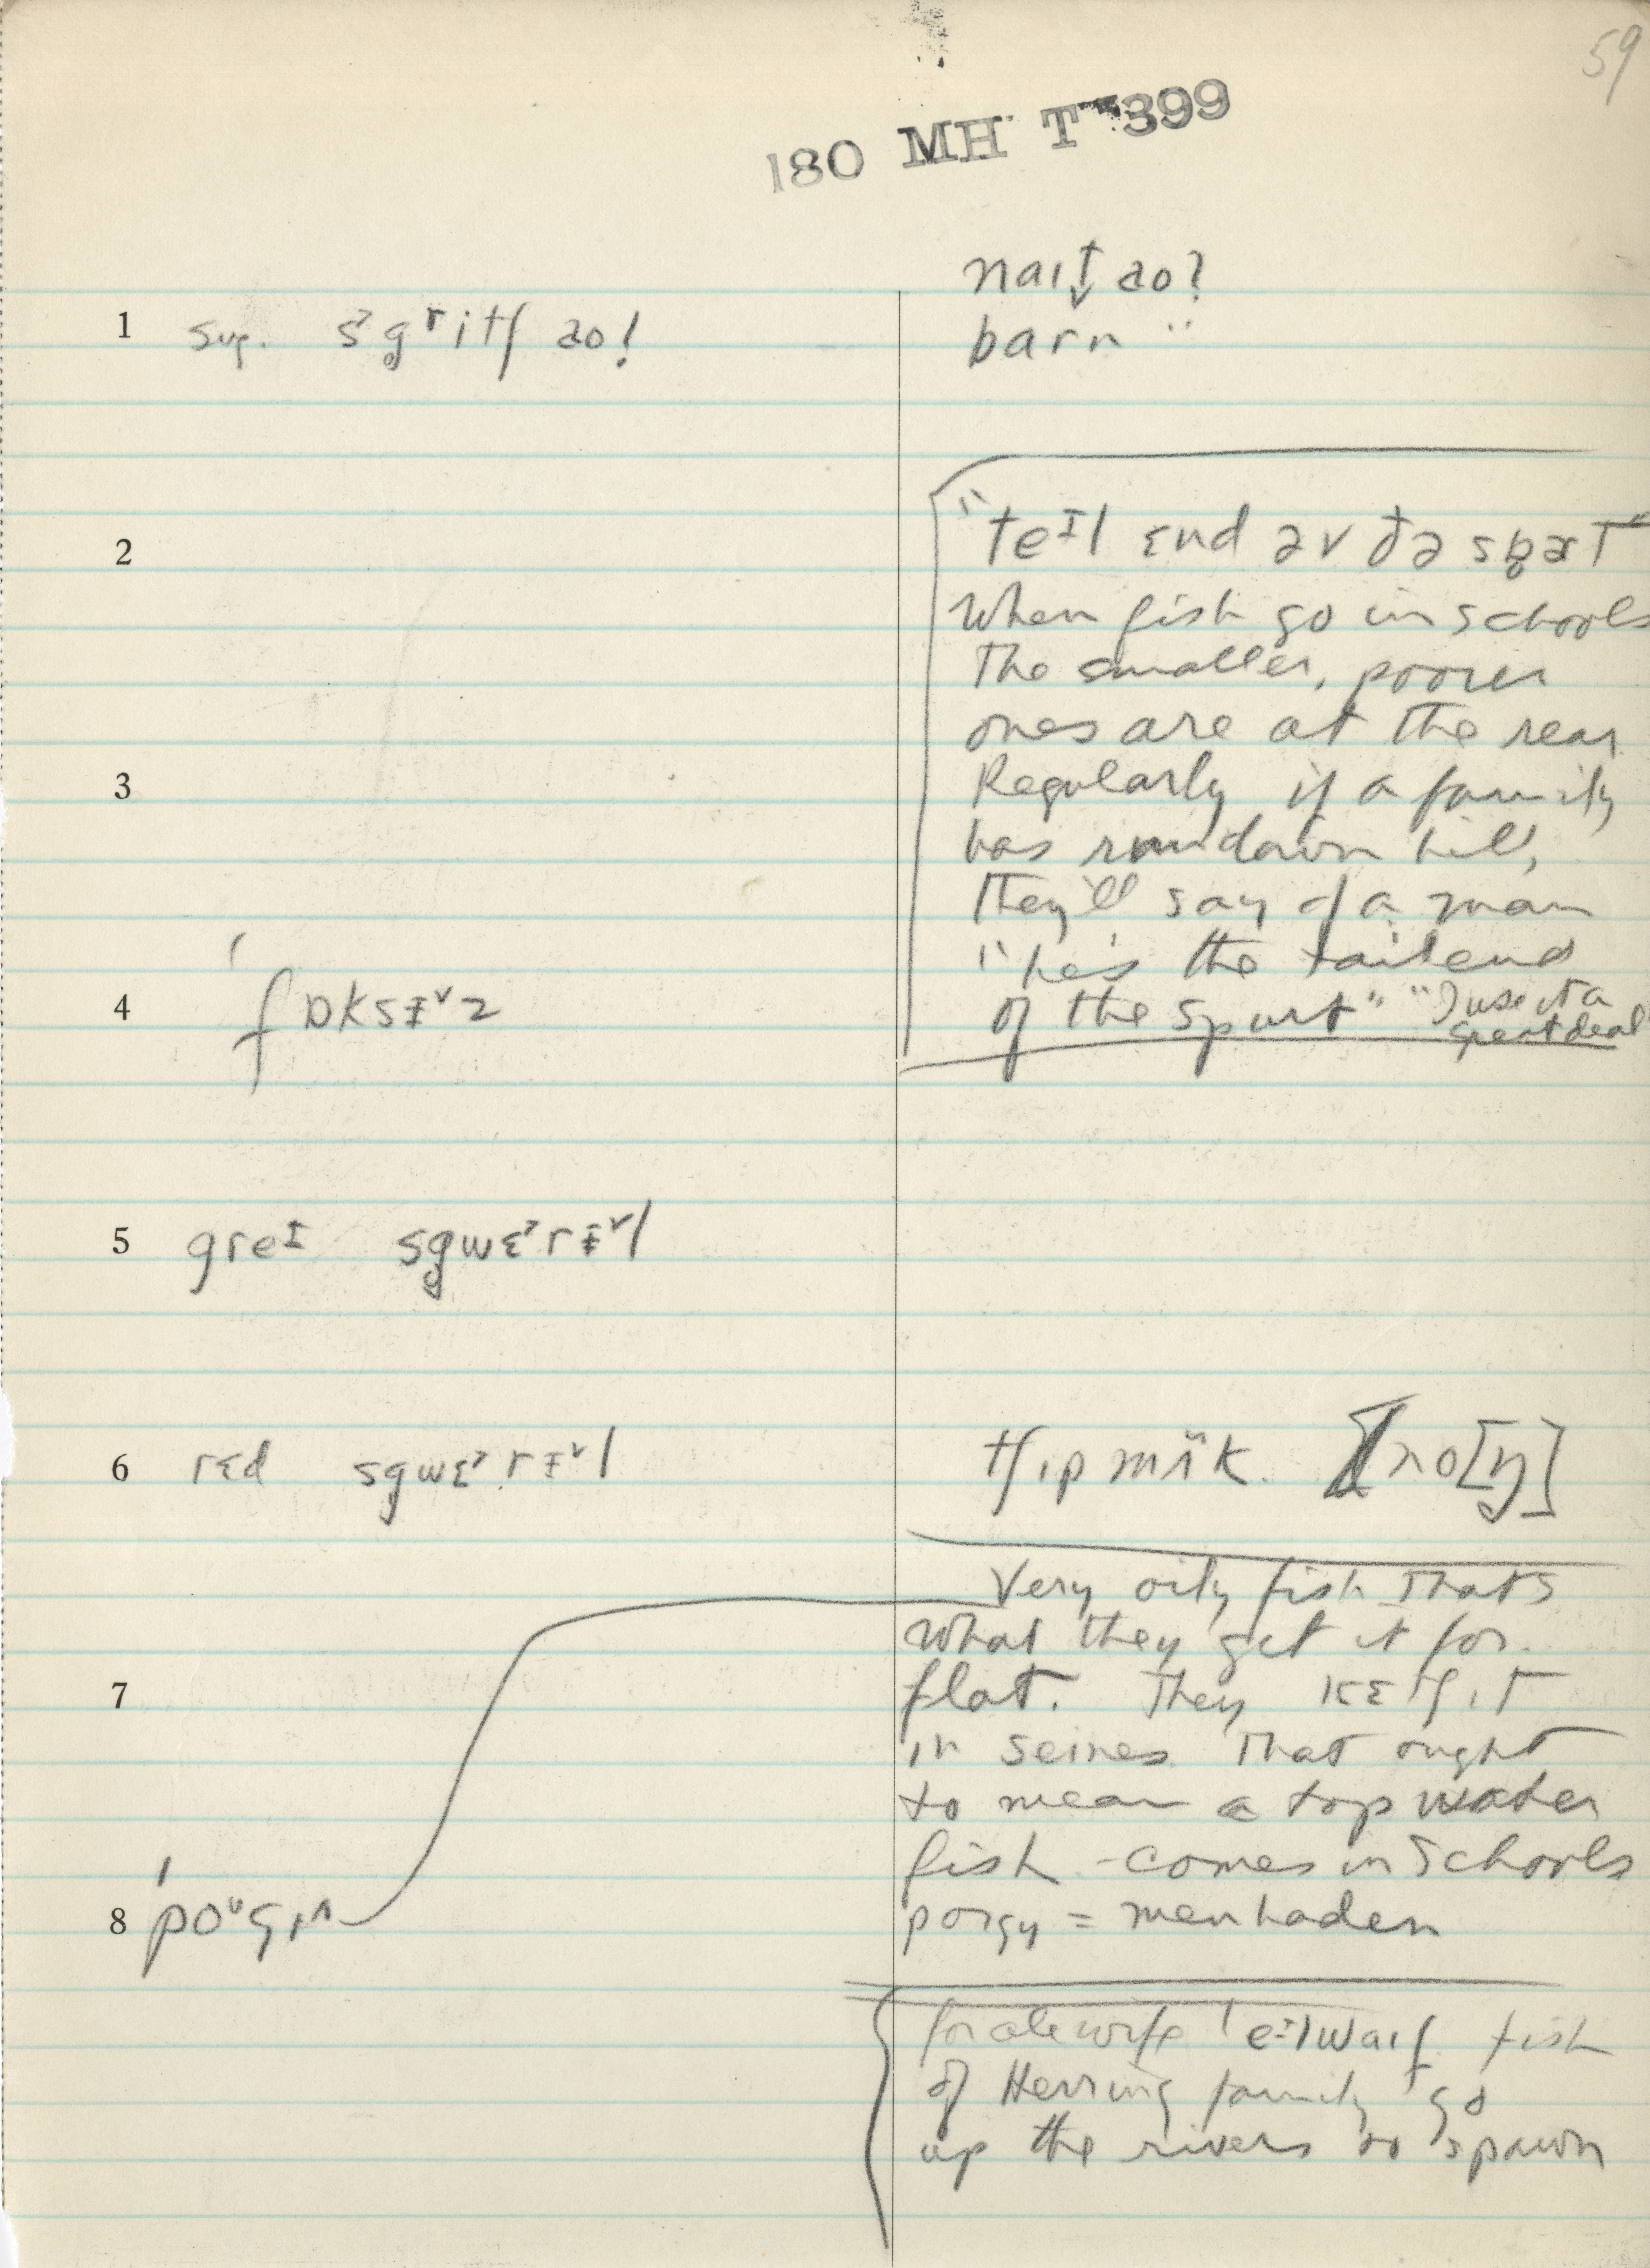 59
180 MH T 399
naɪt̬ ao?
1 sug. s˃g̥ritʃ ao!
barn "
2 "teᴵl ɛnd əv ðə sb̥ɜt"
When fish go in schools
The smaller, poorer
ones are at the rear
3 Regularly if a family
has run down hill,
they'll say of a man
"he's the tail end
4 ˈfɒksɨ˅z
of the spurt" "I use it a
great deal
5 greᴵ sg̥wɛ˃rɨ˅l
6 rɛd sgwɛ˃rɨ˅l
tʃɪpmʌ̈k. no[ŋ]
Very oily fish thats
what they get it for.
7 flat. They kɛtʃ ɪt
in seines That ought
to mean a top water
fish - comes in schools
8 ˈpoᵘgɪ^
porgy = menhaden
for alewife ˈeᴵlwaɪf fish
of Herring family go
up the rivers to spawn